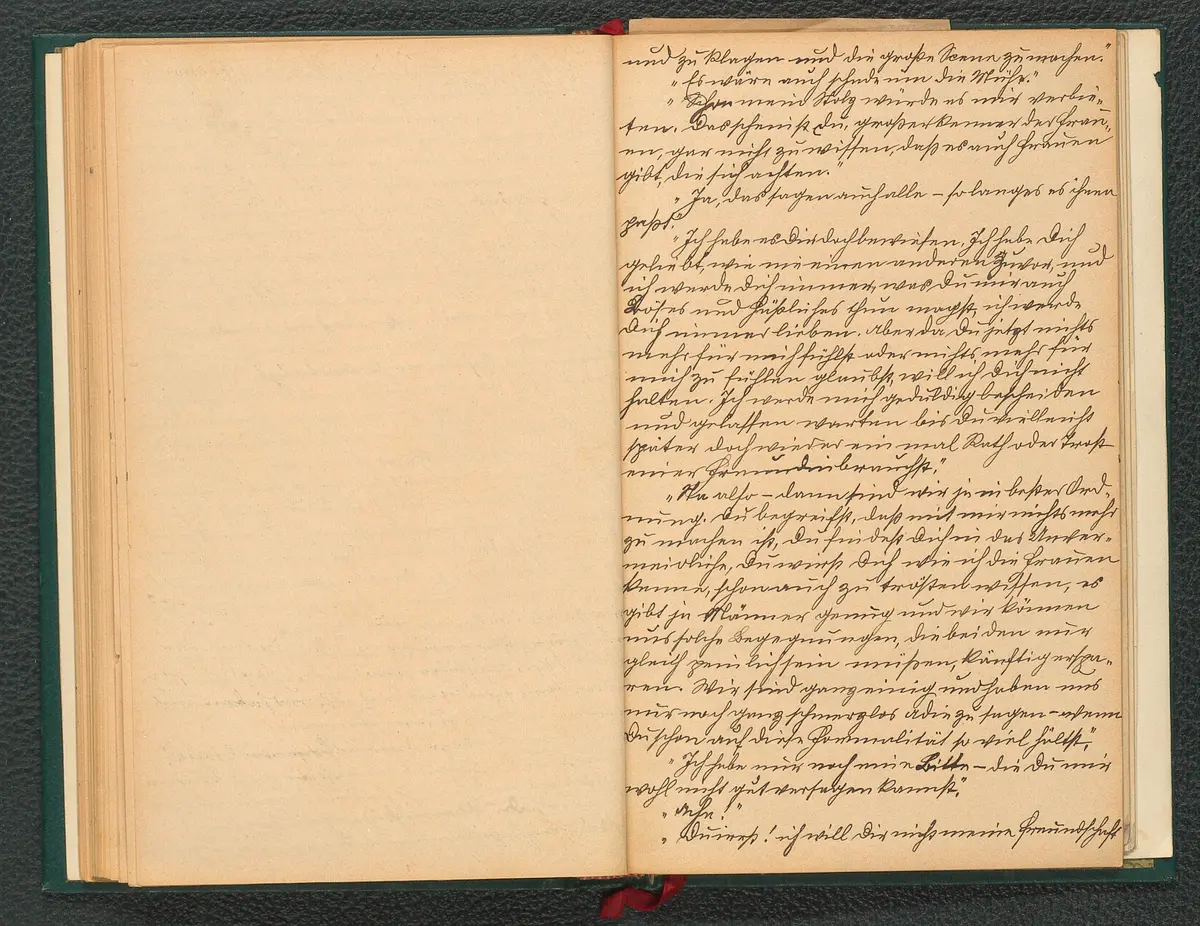 und zu klagen und die große Scene zu machen."
"Es wäre auch schade um die Mühe."
"Schon mein Stolz würde es mir verbie-
ten. Das scheinst Du, großer Kenner der Frau-
en, gar nicht zu wissen, daß es auch Frauen
gibt, die sich achten."
"Ja, das sagen auch alle – solange es ihnen
paßt."
"Ich habe es Dir doch bewiesen. Ich habe Dich
geliebt, wie nie einen anderen zuvor, und
ich werde Dich immer, was Du mir auch
Böses und Häßliches thun magst, ich werde
Dich immer lieben. Aber da Du jetzt nichts
mehr für mich fühlst oder nichts mehr für
mich zu fühlen glaubst, will ich Dich nicht
halten. Ich werde mich geduldig bescheiden
und gelassen warten bis Du vielleicht
später doch wieder ein mal Rath oder Trost
einer Freundin brauchst."
"Na also – dann sind wir ja in bester Ord-
nung. Du begreifst, daß mit mir nichts mehr
zu machen ist, Du findest Dich in das Unver-
meidliche, Du wirst Dich wie ich die Frauen
kenne, schon auch zu trösten wissen, es
gibt ja Männer genug und wir können
uns solche Begegnungen, die beiden nur
gleich peinlich sein müßen, künftig erspa-
ren. Wir sind ganz einig und haben uns
nur noch ganz schmerzlos Adie zu sagen – wenn
Du schon auf diese Formalität so viel hältst."
"Ich habe nur noch eine Bitte – die Du mir
wohl nicht gut versagen kannst."
"Aha!"
"Du irrst! ich will Dir nicht meine Freundschaft